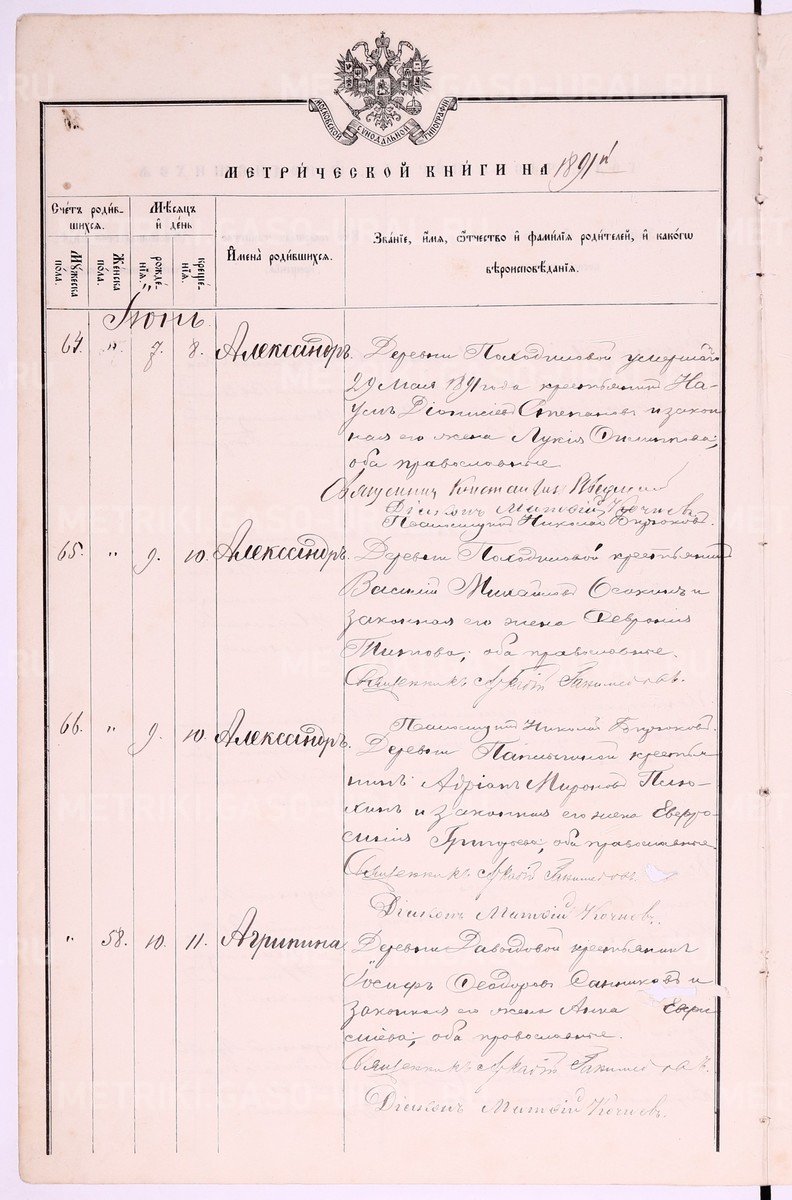 МОСКОВСКОЙ СѴНОДАЛЬНОЙ ТИПОГРАФІИ
МЕТРИ́ЧЕСКОЙ КНИ́ГИ НА 1891й
Сче́тъ роди́в-
шихся.
Мꙋ́жеска
по́ла.
Же́нска
по́ла.
Мѣ́сяцъ
и҆ де́нь
рожде́-
нїѧ.
креще́-
нїѧ.
И҆мена̀ роди́вшихся.
Зва́нїе, и҆́мѧ, ѻ҆́тчество и҆ фами́лїѧ роди́телей, и҆ како́гѡ
вѣроисповѣ́данїѧ.
Іюнь.
64. " 7. 8. Александръ. Деревни Походиловой умершаго
29 Мая 1891 года крестьянинъ На-
умъ Діонисіевъ Степановъ и закон
ная его жена Лукія Филиппова;
оба православные
Священникъ Константинъ
Діаконъ Матѳій Кочневъ.
Псаломщикъ Николай Бирюковъ.
65. " 9. 10. Александръ. Деревни Походиловой крестьянинъ
Василій Михайловъ Осокинъ и
законная его жена Феврония
Титова; оба православные.
Священникъ
Псаломщикъ Николай Бирюковъ.
66. " 9. 10. Александръ. Деревни крестья
нинъ Адріанъ Мироновъ
и законная его жена Евфро-
синія Григорьева; оба православные
Священникъ
Діаконъ Матѳій Кочневъ.
" 58. 10. 11. Агрипина Деревни Давыдовой крестьянинъ
Іосифъ Ѳеодоровъ Санниковъ и
законная его жена Анна
оба православные.
Священникъ
Діаконъ Матѳій Кочневъ.